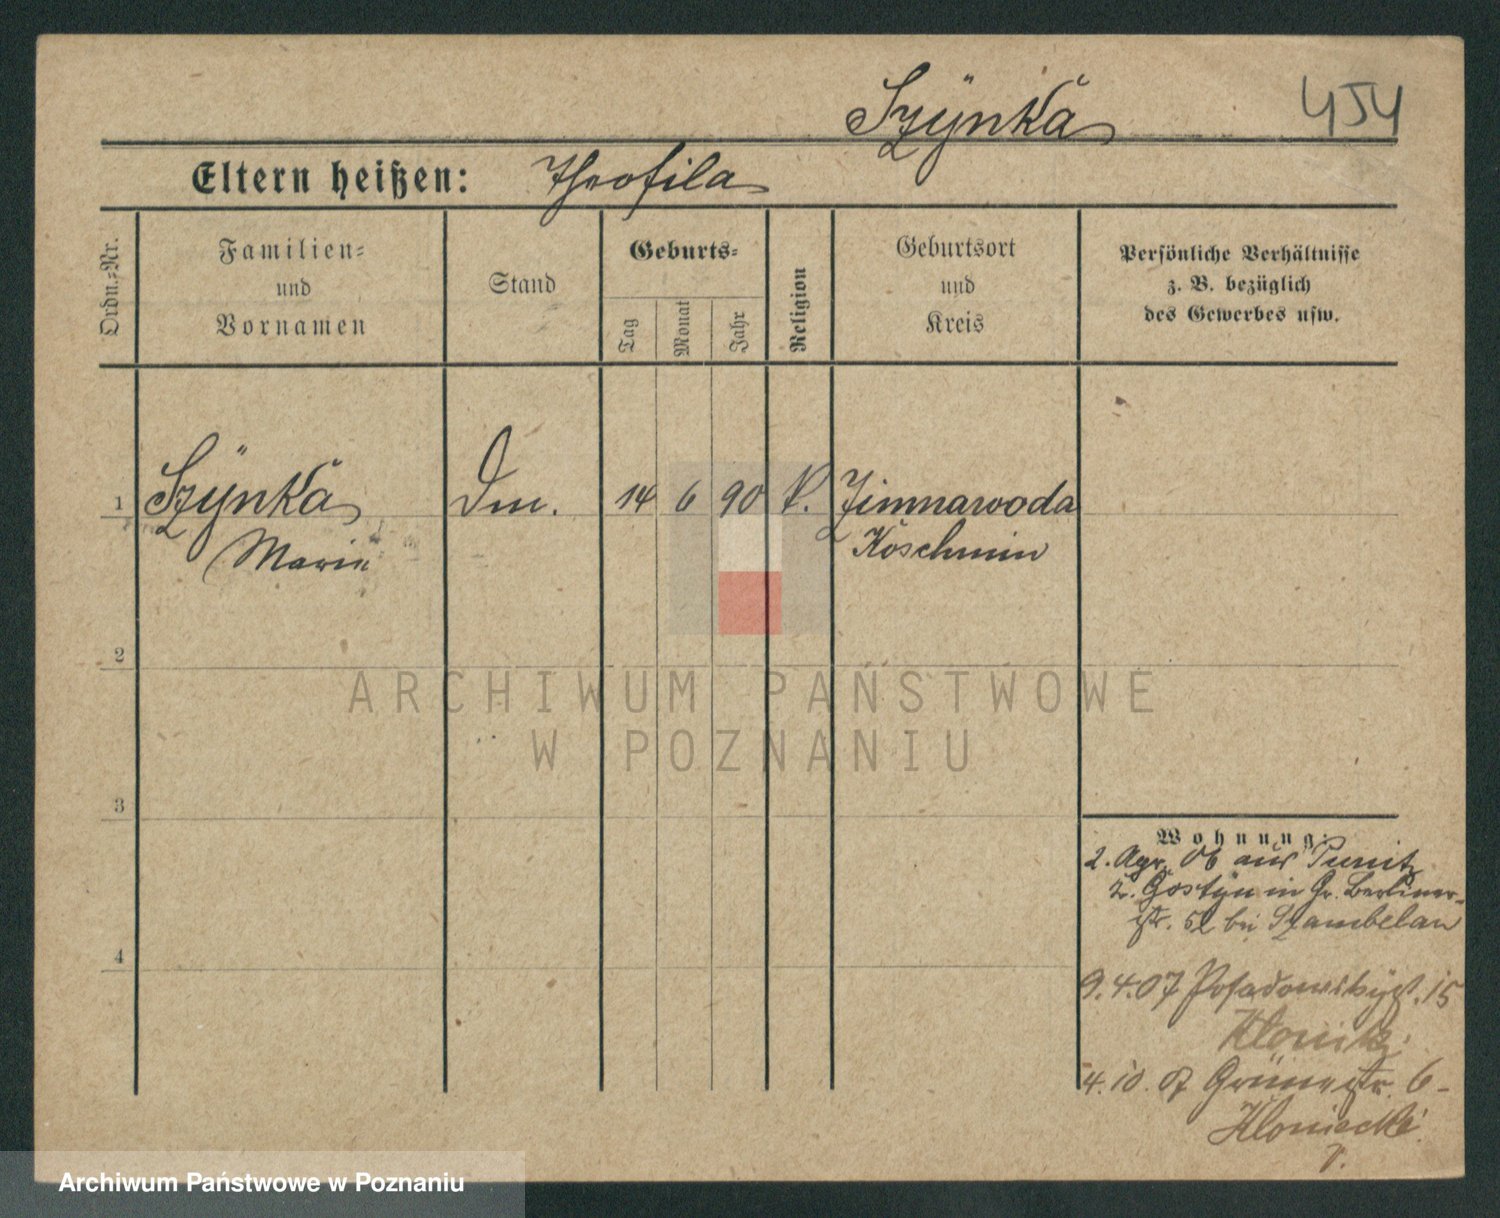 Szÿnka
454
Eltern heißen: Theofila
Ordn.-Nr.
Familien-
und
Vornamen
Stand
Geburts-
Tag
Monat
Jahr
Religion
Geburtsort
und
Kreis
Persönliche Verhältnisse
z. B. bezüglich
des Gewerbes usw.
1 Szÿnka Dm. 14 6 90 k. Zimnawoda
Marie Koschmin
2
3
4
Wohnung:
2. Apr. 06 aus Punitz
Kr. Gostÿn in Gr. Berliner-
str. 52 bei Szambelan
9.4.07 Posadowskÿst. 15
4.10.07 Grünestr. 6-
Kloniecki
ARCHIWUM PAŃSTWOWE
W POZNANIU
Archiwum Państwowe w Poznaniu